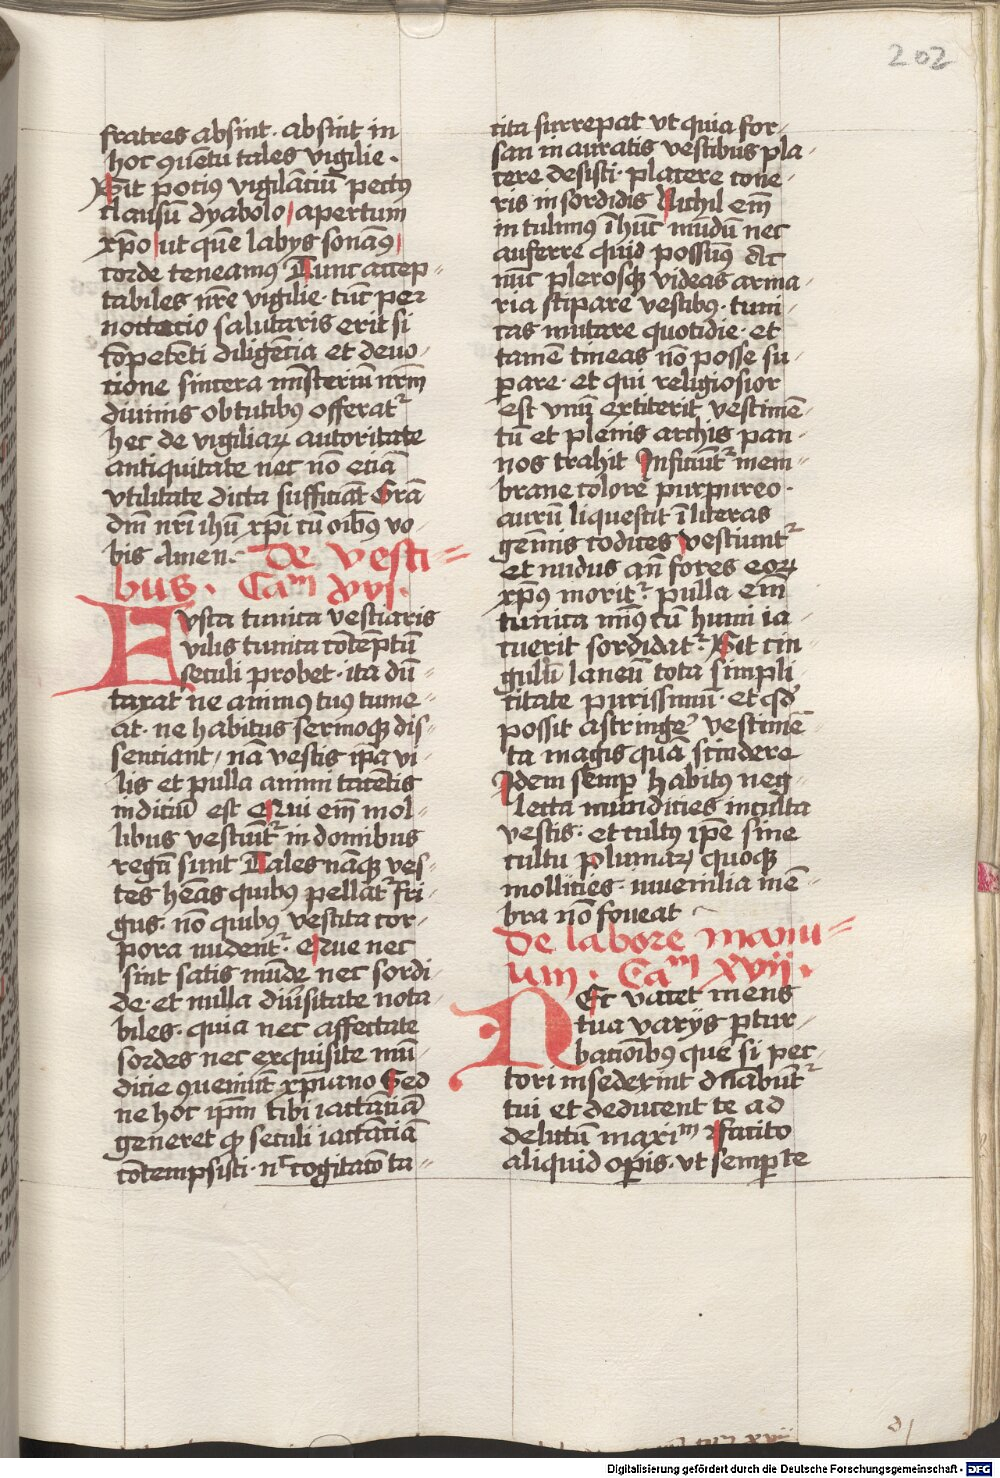 202
fratres absint · absint in
hoc ꝯuētu tales vigilie ·
Sit potius vigilātiū pectꝰ
clausū dyabolo / apertum
xp̄o / ut quē labijs sonamꝰ /
corde teneamꝰ Tunc accep⸗
tabiles nr̄e vigilie · tūc per
noctacio salutaris erit si
cōpetēti diligēcia et deuo⸗
tione sincera mīsteriū nr̄m
diuinis obtutibꝰ offerat᷑
hec de vigiliaꝝ autoritate
antiquitate nec nō etiā
vtilitate dicta sufficiāt Grā
dn̄i nr̄i ihū xp̄i cū oībꝰ vo⸗
bis Amen · De vesti⸗
bus · Cam xvi ·
Fusca tunica vestiaris
vilis tunica cōtēptū
seculi probet · ita dū⸗
taxat ne animꝰ tuꝰ tume⸗
at · ne habitus sermoqꝫ dis⸗
sentiant / nā vestis ip̄a vi⸗
lis et pulla animi tacētis
indiciū est Qui em̄ mol⸗
libus vestiūt᷑ in domibus
regū sunt Tales nāqꝫ ves⸗
tes heās quibꝰ pellat᷑ fri⸗
gus · nō quibꝰ vestita cor⸗
pora nudent᷑ · Que nec
sint satis mūde nec sordi⸗
de · et nulla diūsitate nota⸗
biles · quia nec affectate
sordes nec exquisite mū⸗
dicie ꝯueniūt xp̄iano Sed
ne hoc ip̄m tibi iactātiā
generet ꝙ seculi iactātiā
cōtempsisti · nͨ cogitacō ta⸗
cita surrepat vt quia for⸗
san in auratis vestibus pla⸗
cere desisti · placere cone⸗
ris in sordidis Nichil em̄
intulimꝰ ī hūc mūdū nec
auferre quid possumꝰ Ac
nūc plerosqꝫ videas arma⸗
ria stipare vestibꝰ · tuni⸗
cas mutare quotidie · et
tamē tineas nō posse su⸗
pare · et qui religiosior
est vnū extiterit vestimē⸗
tū et plenis archis pan⸗
nos trahit Inficiūt᷑ mem⸗
brane colore purpureo ·
aurū liquescit ī literas
gemmis codices vestiunt᷑
et nudus an̄ fores eoꝝ
xp̄ꝰ morit᷑ · pulla em̄
tunica minꝰ cū humi ia⸗
cuerit sordidat᷑ · Sit cin
gulū laneū tota simpli
citate purissimū · et qd̄
possit astringe᷑ vestimē⸗
ta magis quā scindere
Idem semp habitꝰ neg⸗
lecta mundicies inculta
vestis · et cultꝰ ip̄e sine
cultu plumaꝝ quoqꝫ
mollities · iuuenilia mē⸗
bra nō foueat
De labore manu⸗
um · Cam xvij ·
Nec vacet mens
tua varijs ꝑtur⸗
bationibꝰ que si pec⸗
tori insederint dn̄abūt᷑
tui et deducent te ad
delictū maxim Facito
aliquid opis · vt semp te
Digitalisierung gefördert durch die Deutsche Forschungsgemeinschaft - DFG